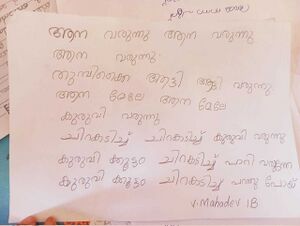 ആന വരുന്നു ആന വരുന്നു
ആന വരുന്നു
തുമ്പിക്കൈ ആട്ടി ആട്ടി വരുന്നു
ആന മേലേ ആന മേലേ
കുരുവി വരുന്നു
ചിറകടിച്ച് ചിറകടിച്ച് കുരുവി വരുന്നു
കുരുവി ക്കൂട്ടം ചിറകടിച്ച് പാറി വരുന്നു
കുരുവി ക്കൂട്ടം ചിറകടിച്ച് പറന്നു പോയ്
V. Mahadev 1B